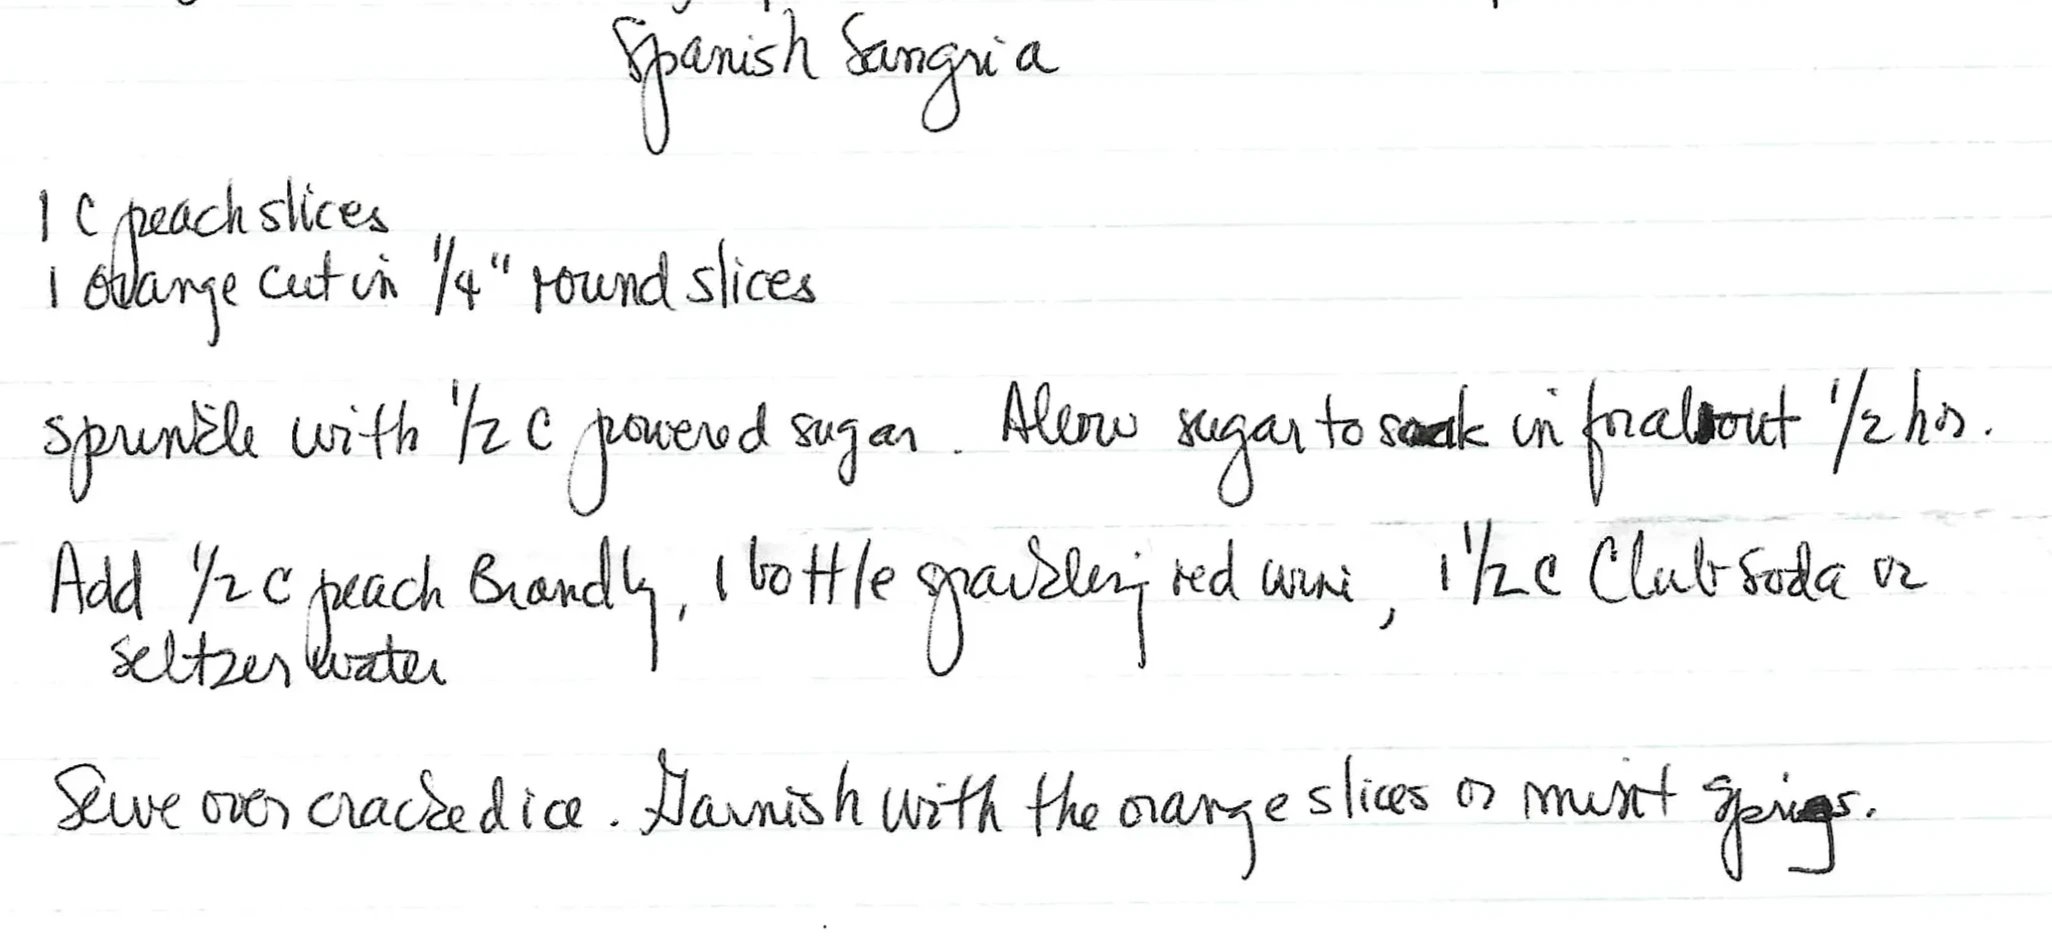 Spanish Sangria
1 C peach slices
1 orange cut in 1/4" round slices
sprinkle with 1/2 C powered sugar. Allow sugar to soak in for about 1/2 hr.
Add 1/2 C peach Brandy, 1 bottle sparkling red wine, 1 1/2 C Club soda or
seltzer water
Serve over cracked ice. Garnish with the orange slices or mint sprigs.